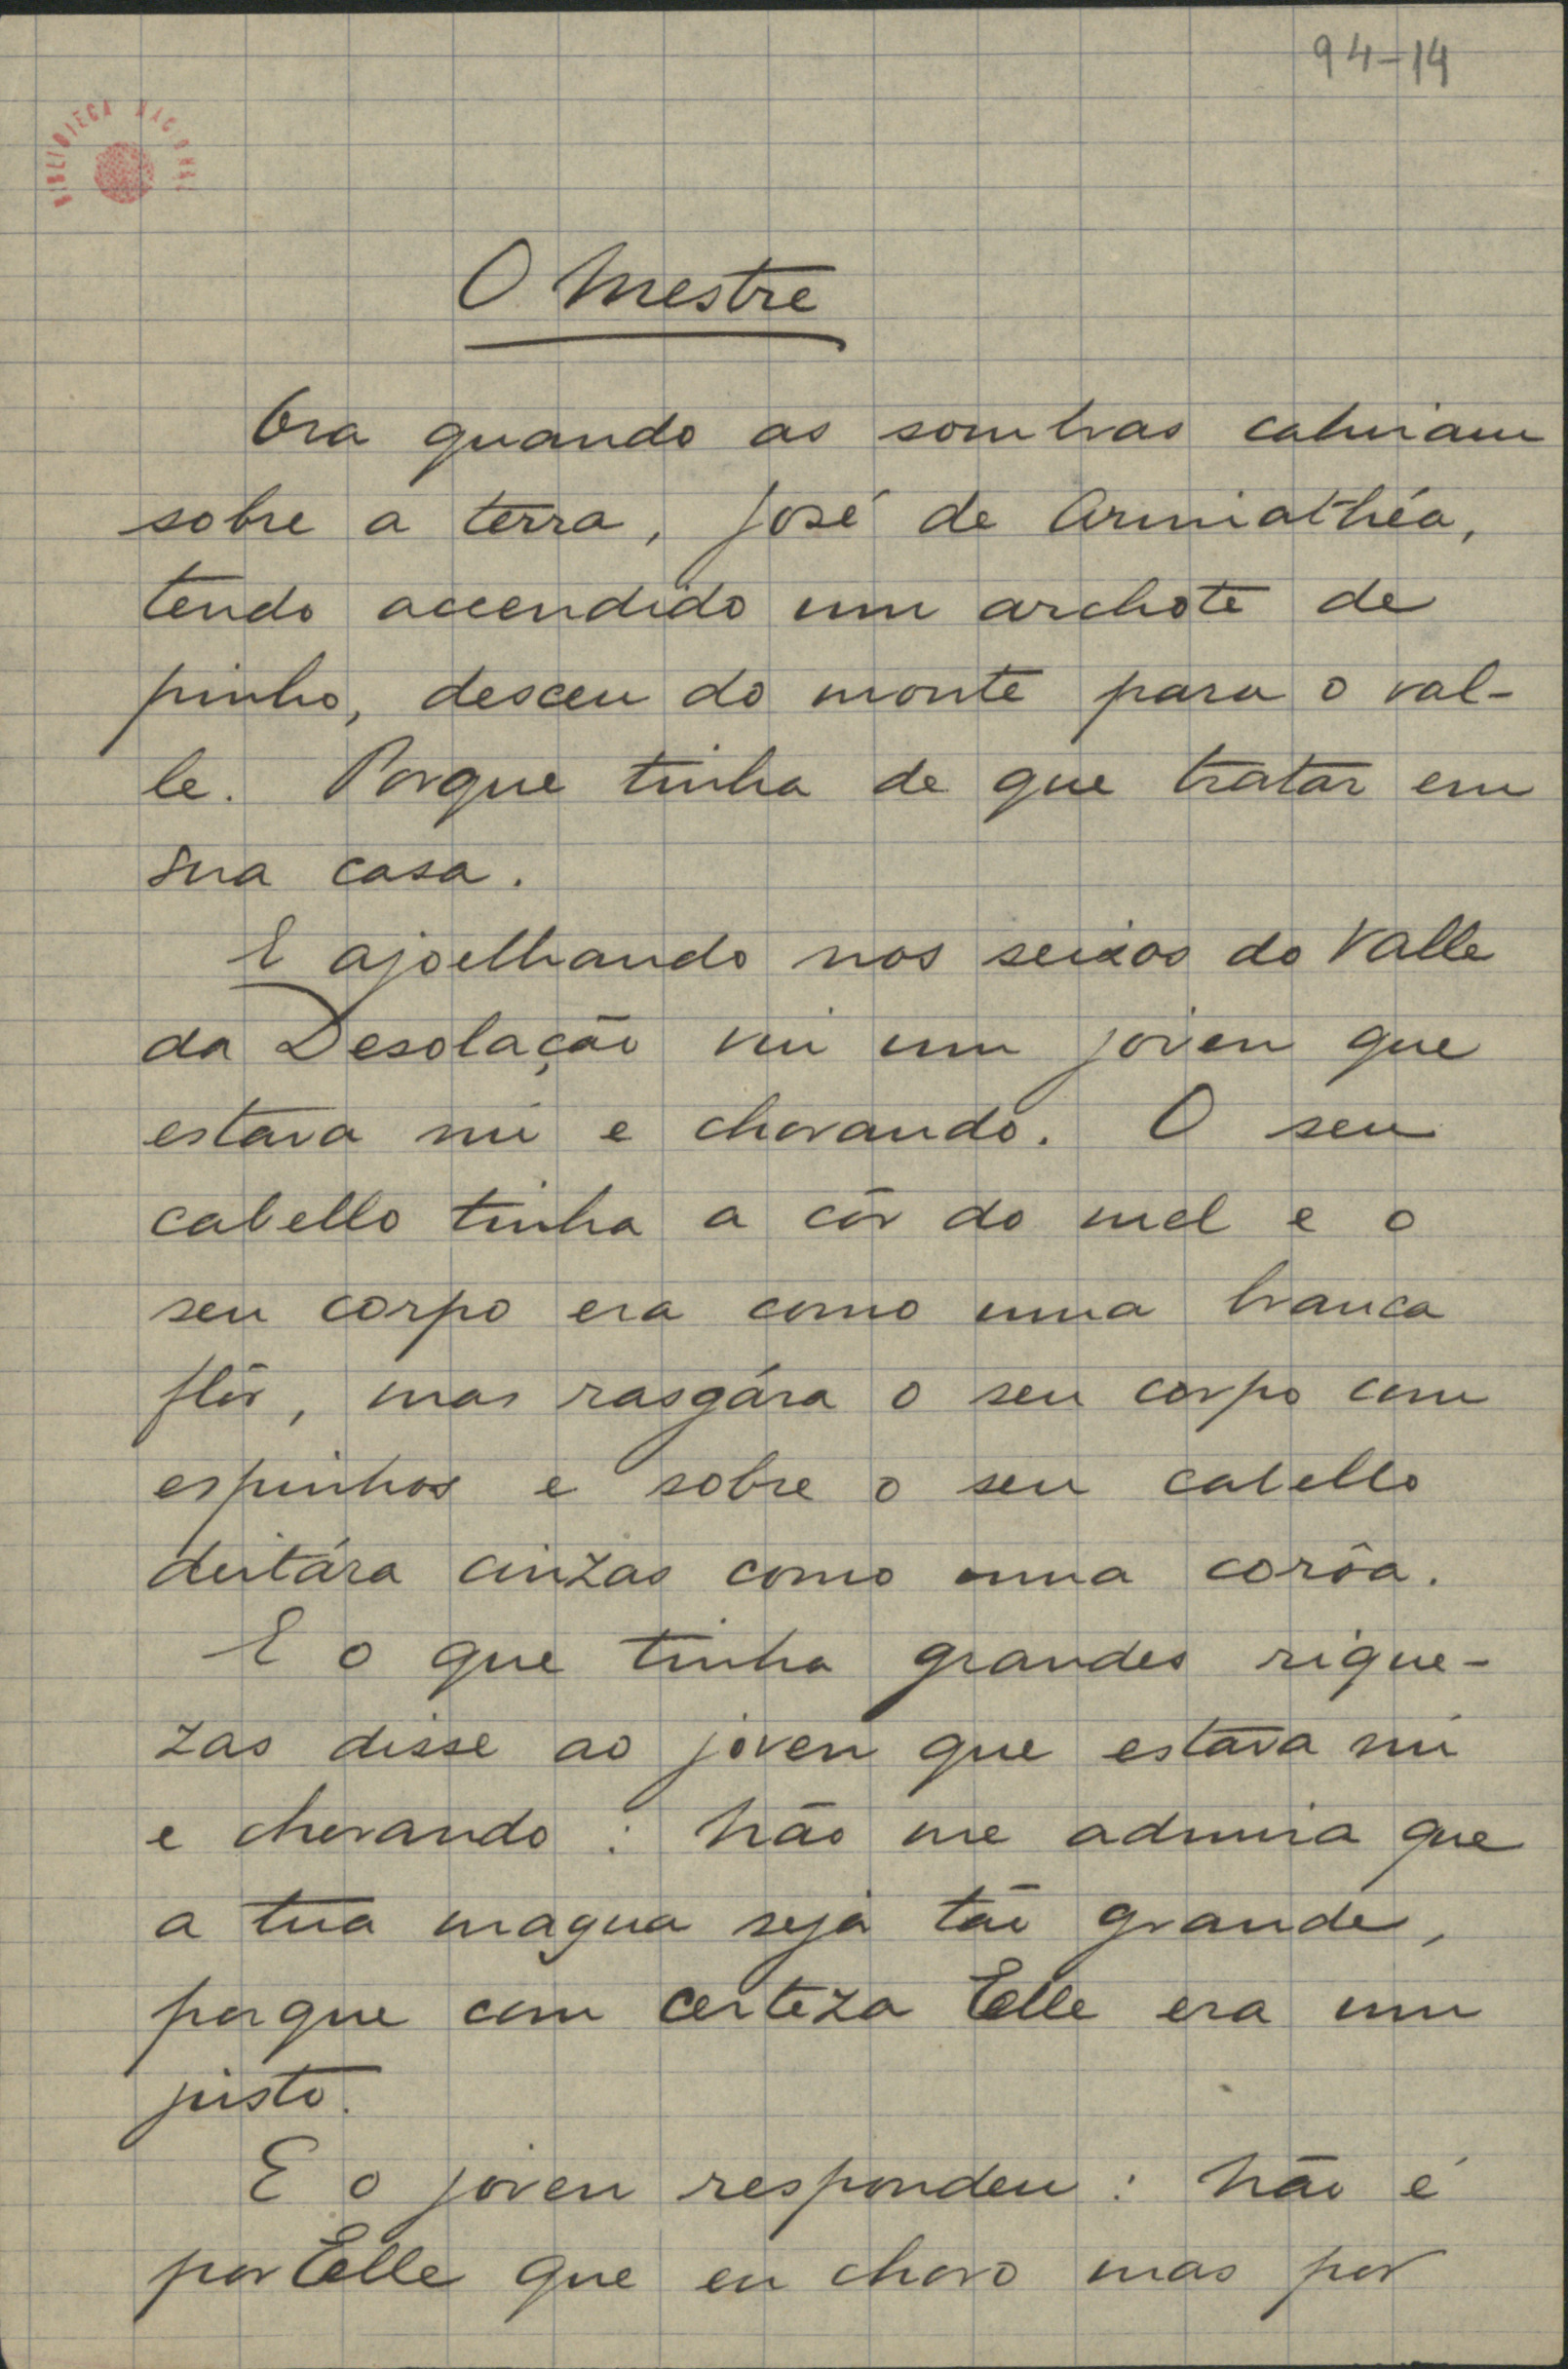 94-14
BIBLIOTECA NACIONAL
O Mestre
Ora quando as sombras cahiram
sobre a terra, José de Arimathéa,
tendo accendido um archote de
pinho, desceu do monte para o val-
le. Porque tinha de que tratar em
sua casa.
E ajoelhando nos seixos do Valle
da Desolação viu um joven que
estava nú e chorando. O seu
cabello tinha a côr do mel e o
seu corpo era como uma branca
flôr, mas rasgára o seu corpo com
espinhos e sobre o seu cabello
deitára cinzas como uma corôa.
E o que tinha grandes rique-
zas disse ao joven que estava nú
e chorando: Não me admira que
a tua magua seja tão grande,
porque com certeza Elle era um
justo.
E o joven respondeu: Não é
por Elle que eu choro mas por